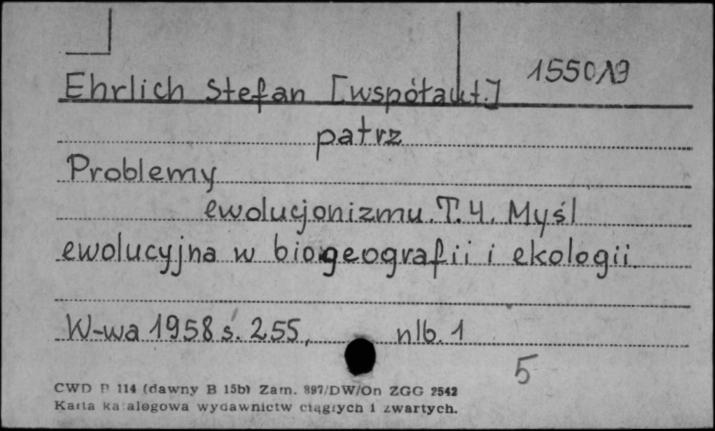 155019
Ehrlich Stefan [współaut.]
patrz
Problemy
ewolucjonizmu. T. 4. Myśl
ewolucyjna w biogeografii i ekologii.
W-wa 1958 s. 255, nlb. 1
5
CWD P 114 (dawny B 15b) Zam. 897/DW/On ZGG 2542
Karta katalogowa wydawnictw ciągłych i zwartych.